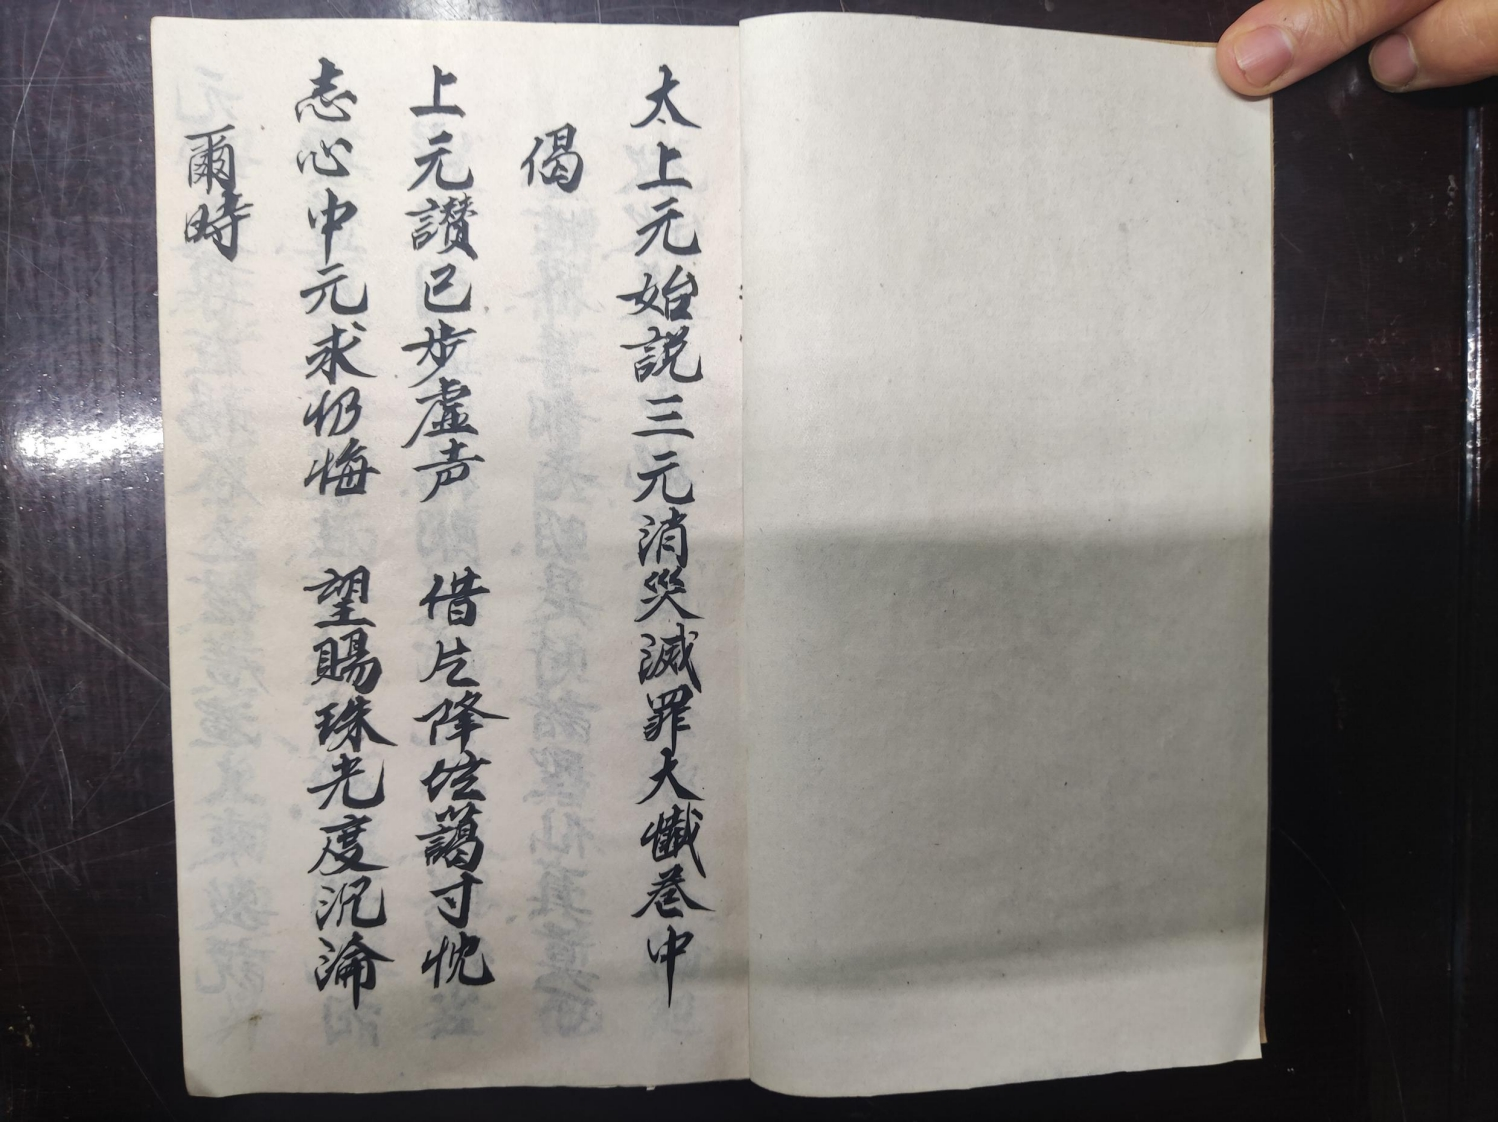 太上元始説三元消災滅罪大懺卷中
偈
上元讃已步虚声　借片降坛藹寸忱
志心中元求忏悔　望賜珠光度沉淪
爾時